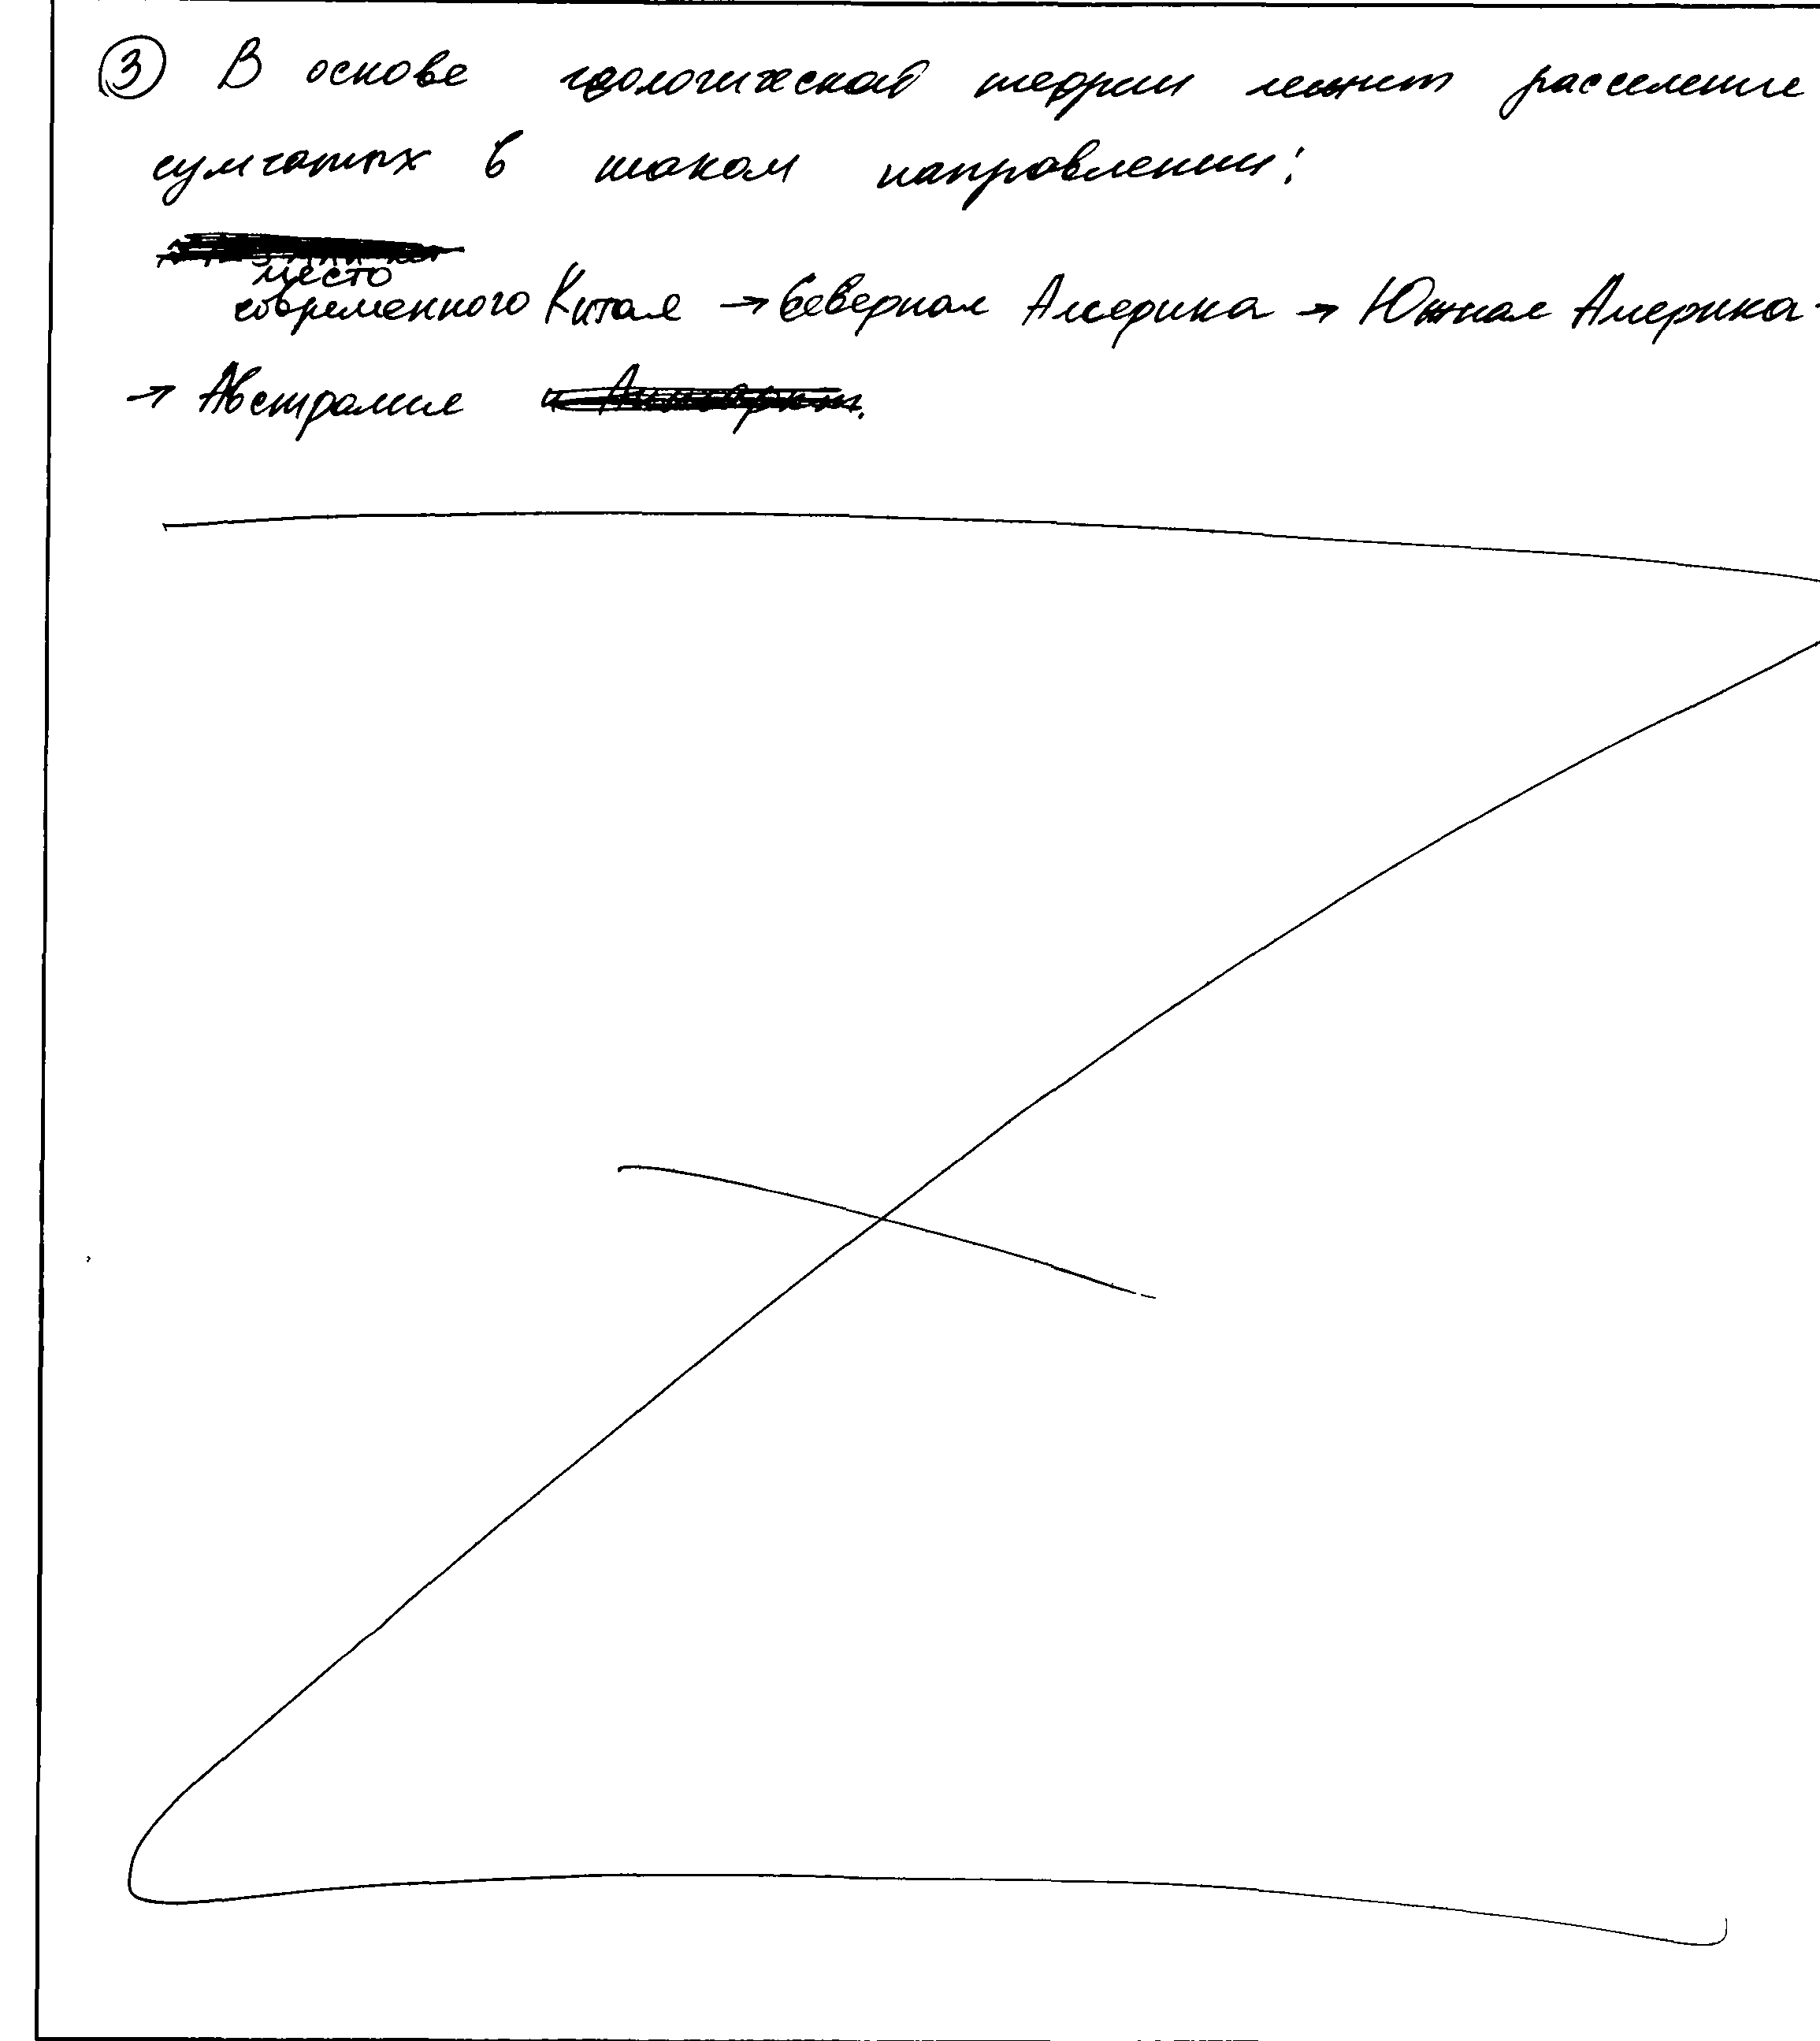 ③ В основе геологической теории лежит расселение
сумчатых в таком направлении:
место
современного Китая → Северная Америка → Южная Америка -
→ Австралия